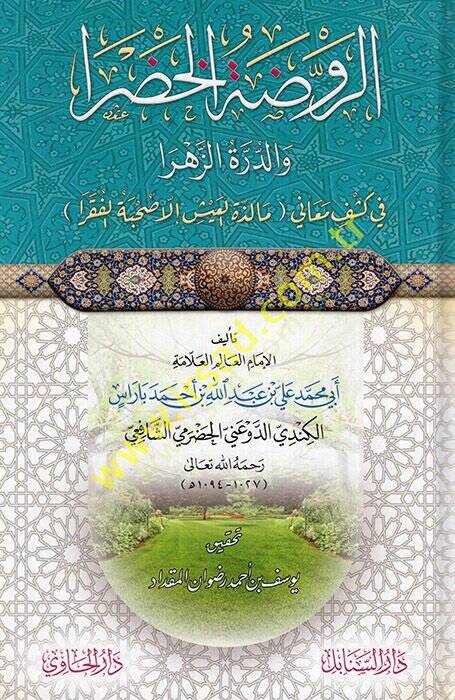 الروضة الخضرا
والدرة الزهرا
في كشف معاني ( ما لذة العيش إلا صحبة الفقرا )
تأليف
الإمام العالم العلامة
أبي محمد علي بن عبد الله بن أحمد باراس
الكندي الدوعني الحضرمي الشافعي
رحمه الله تعالى
(١٠٢٧ - ١٠٩٤ هـ)
تحقيق
يوسف بن أحمد رضوان المقداد
دار السنابل
دار الحاوي